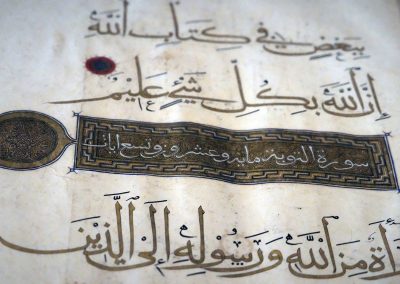 ببعض في كتاب الله
إن الله بكل شيء عليم
سورة التوبة مايه وعشرون وتسع ايات
راة من الله ورسوله إلى الذين